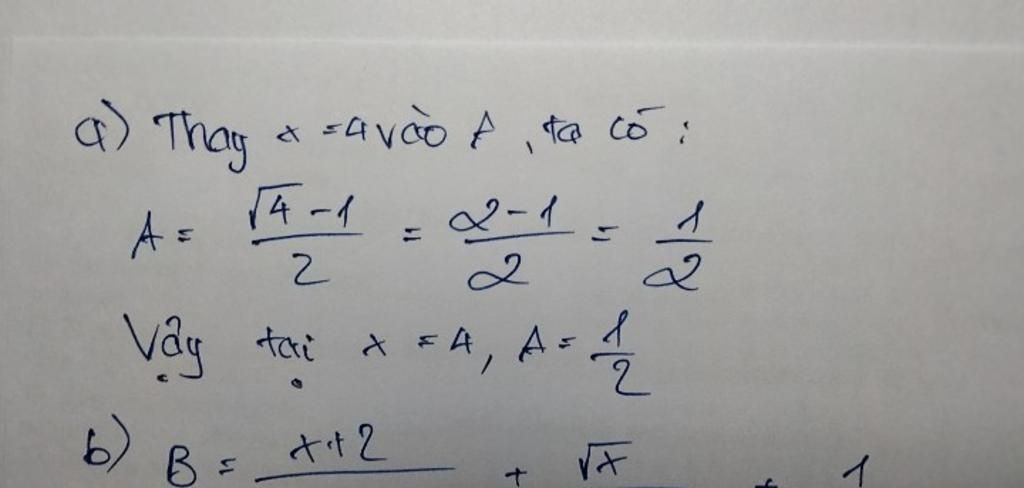 a) Thay x = 4 vào A, ta có:
A = (√4 - 1)/2 = (2 - 1)/2 = 1/2
Vậy tại x = 4, A = 1/2
b) B = (x + 2)/ + √x/ + 1